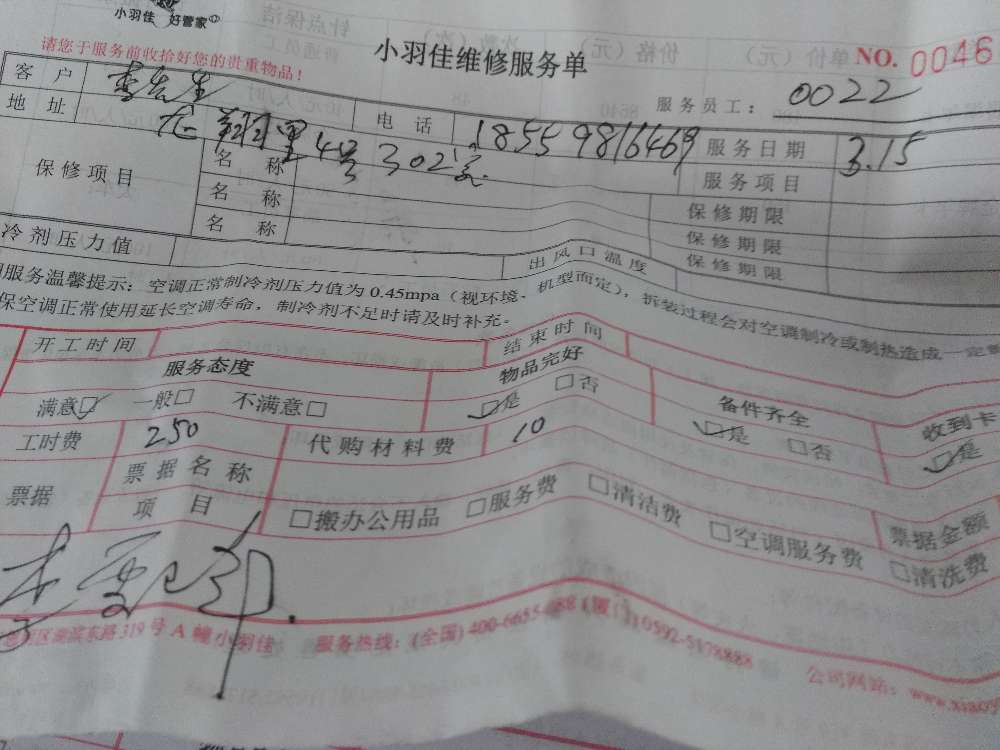 小羽佳 好管家
小羽佳维修服务单
NO. 0046
请您于服务前收拾好您的贵重物品！
服务员工： 0022
客户 李先生 电话 18559816469 服务日期 3.15
地址 龙翔里4号302室 服务项目
保修项目 名称 保修期限
名称 保修期限
名称 保修期限
冷剂压力值 出风口温度
服务温馨提示：空调正常制冷剂压力值为 0.45mpa（视环境、机型而定），拆装过程会对空调制冷或制热造成一定
保空调正常使用延长空调寿命，制冷剂不足时请及时补充。
开工时间 结束时间
服务态度 物品完好 备件齐全 收到卡
满意☑ 一般□ 不满意□ ☑是 □否 ☑是 □否 ☑是
工时费 250 代购材料费 10
票据 票据名称 票据金额
项目 □搬办公用品 □服务费 □清洁费 □空调服务费 □清洗费
区湖滨东路 319 号 A 幢小羽佳 服务热线：(全国) 400-6655- (厦门) 0592-5178888 公司网站：www.xiaoy